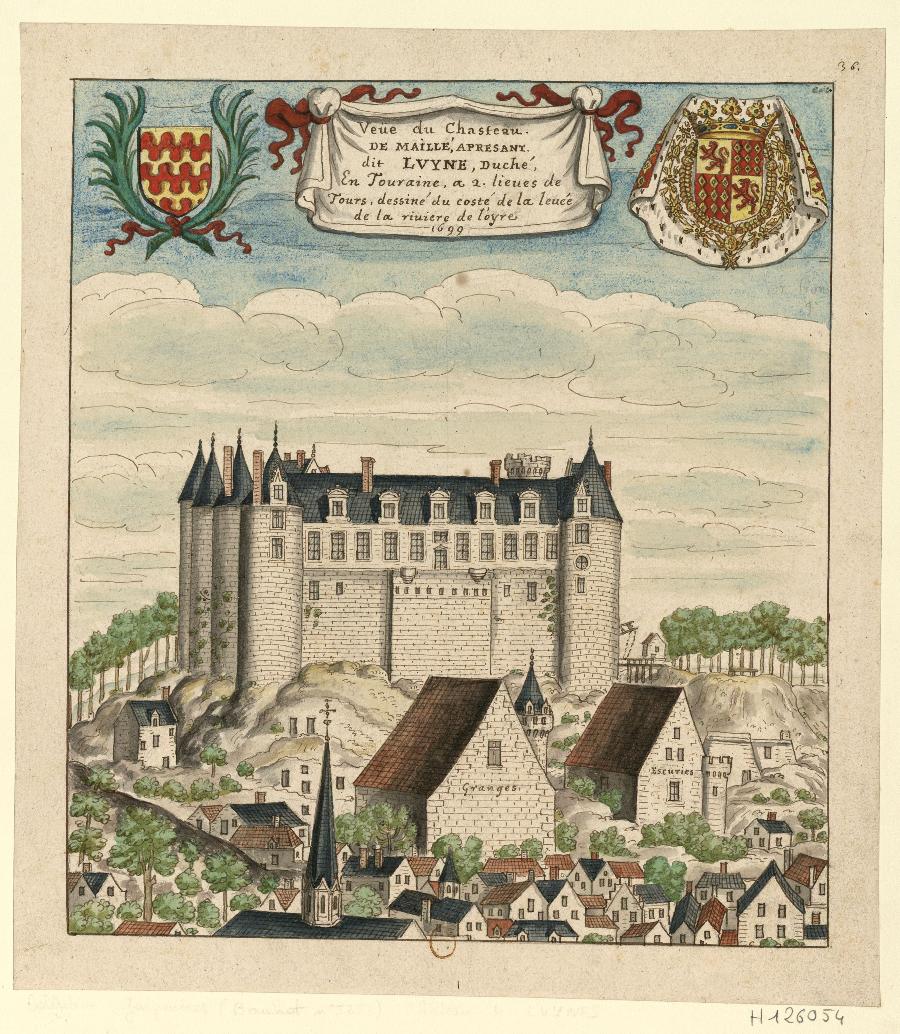 36.
Veüe du Chasteau.
DE MAILLÉ, APRESANT.
dit LVYNE, Duché,
En Touraine, a 2. lieues de
Tours, dessiné du costé de la leueé
de la riuiere de loyre
1699
Escuries
Granges.
H126054